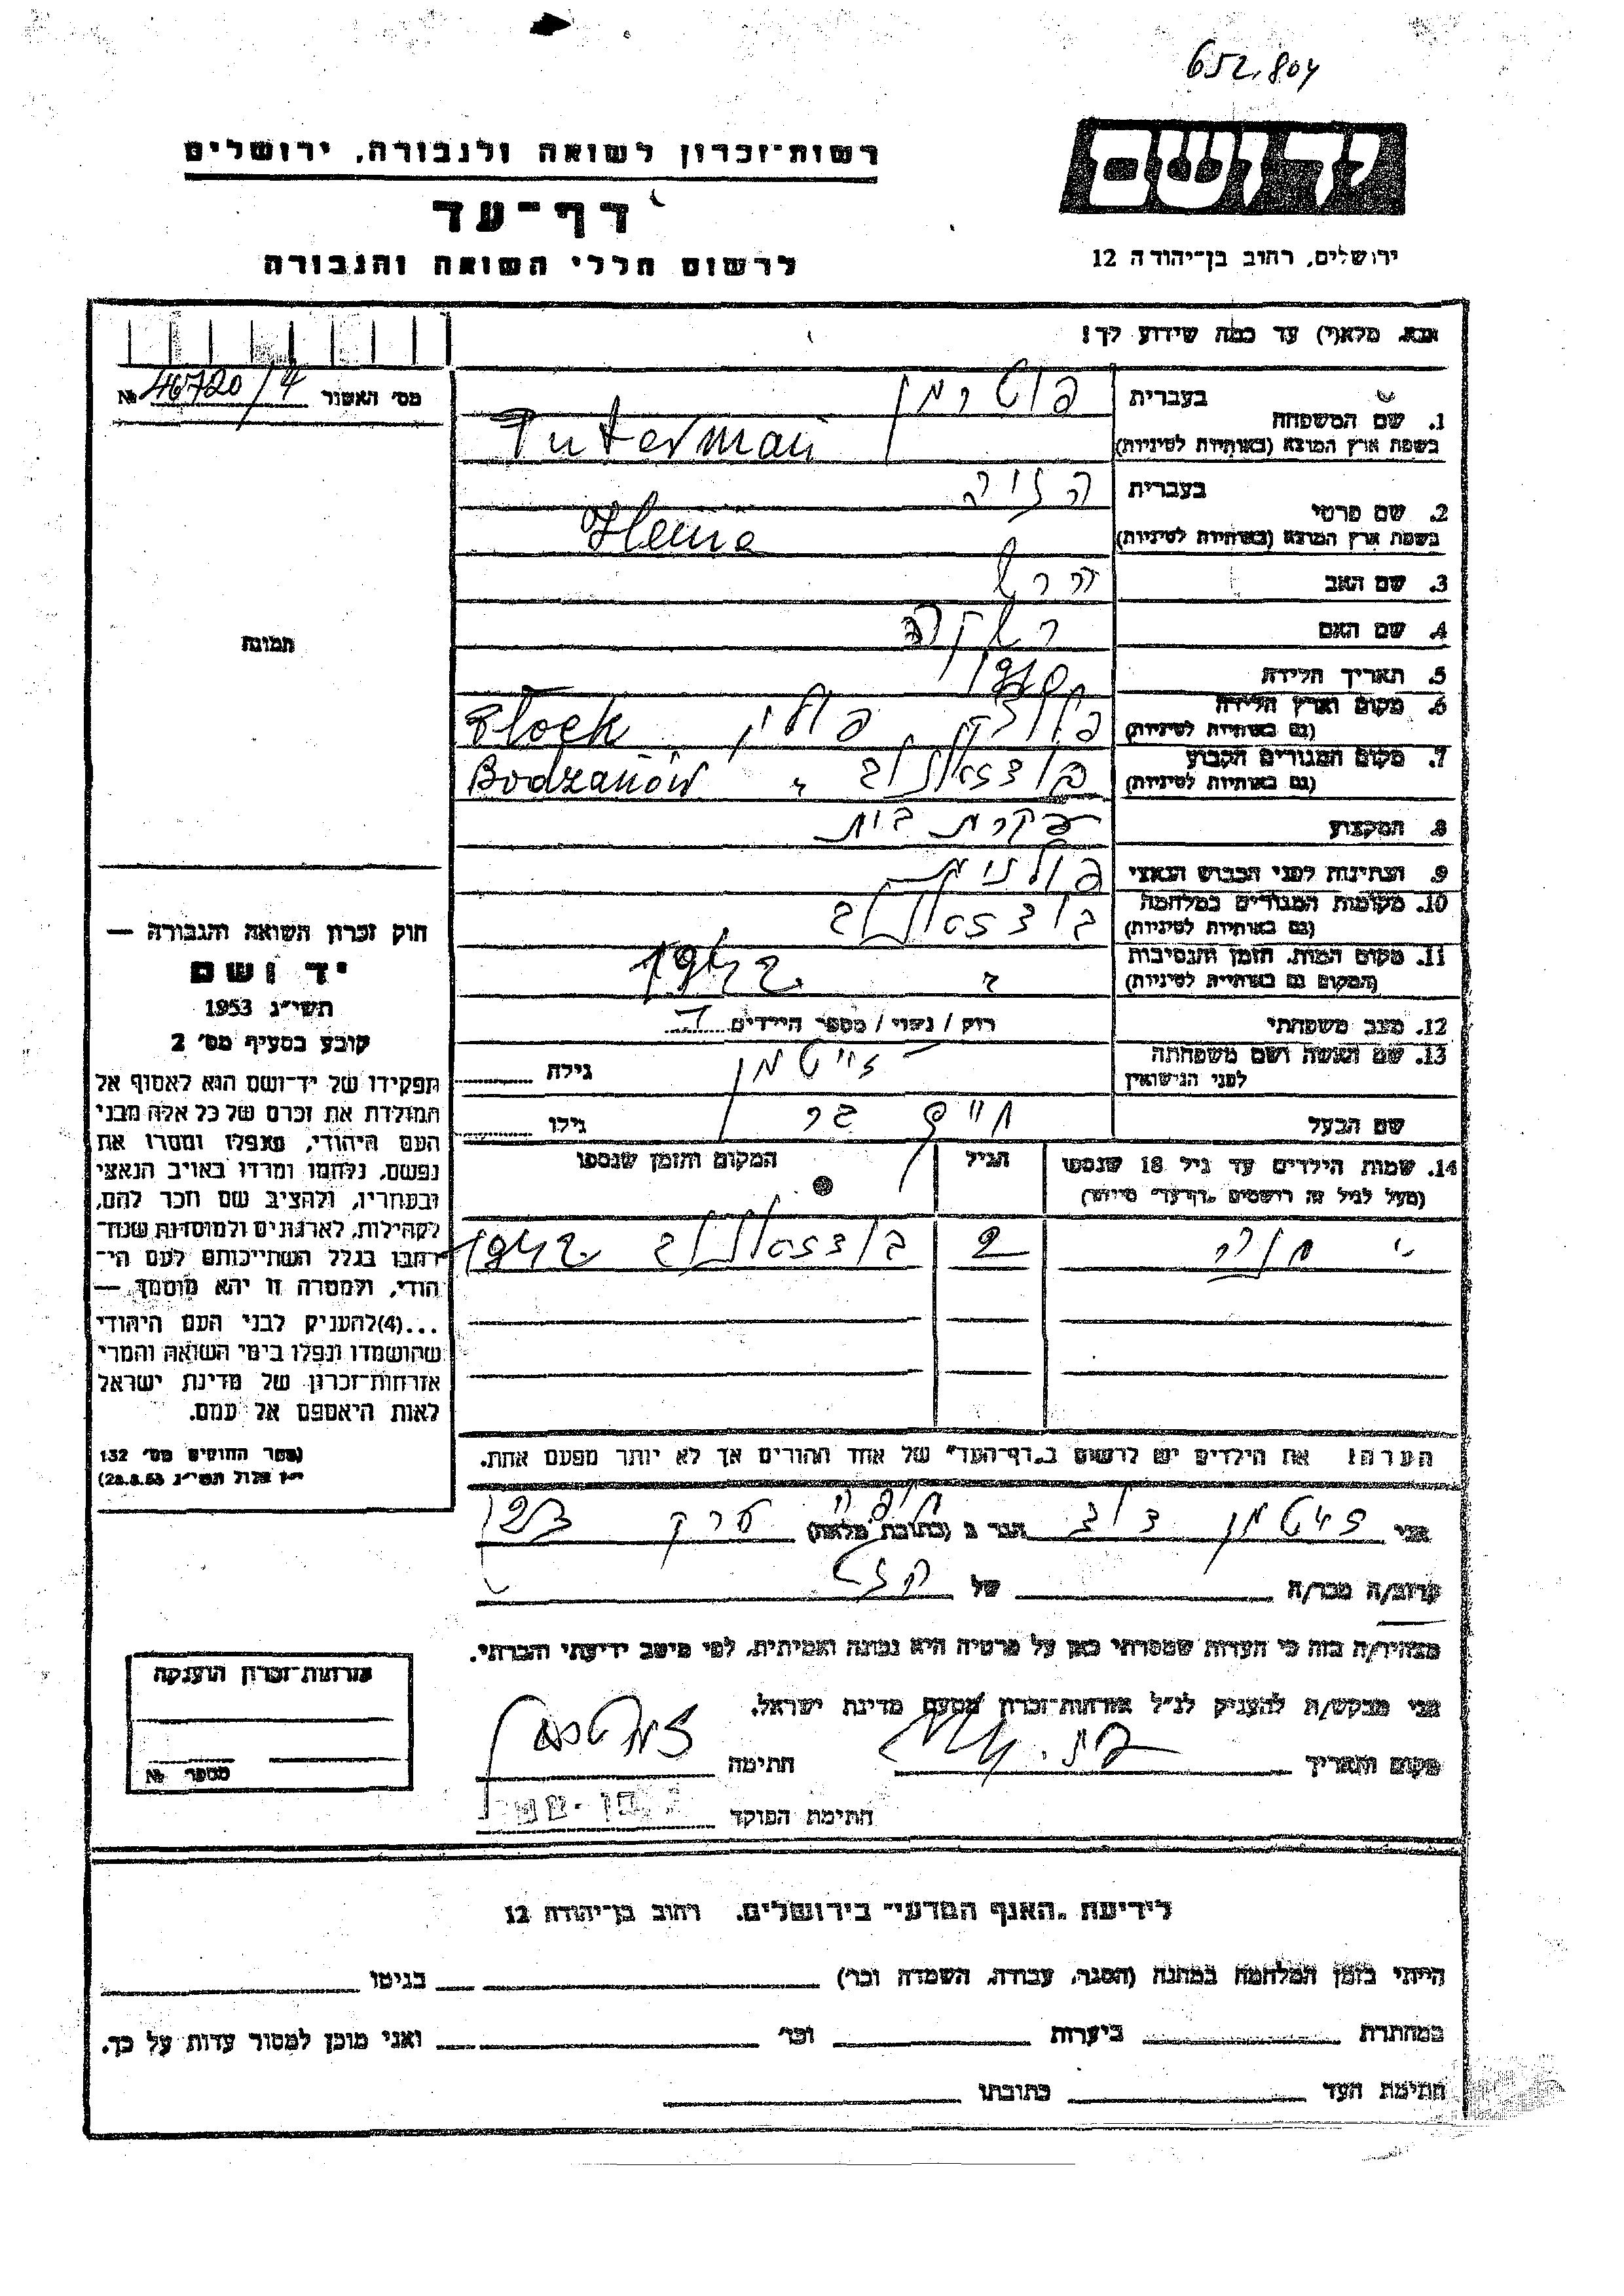 652,804
יד ושם
ירושלים, רחוב בן־יהודה 12
רשות־זכרון לשואה ולגבורה, ירושלים
דף־עד
לרשום חללי השואה והגבורה
אנא, מלא(י) עד כמה שידוע לך!
מס׳ האשור 46720/4 №
1. שם המשפחה
בעברית פוטרמן
בשפת ארץ המוצא (באותיות לטיניות) Puterman
2. שם פרטי
בעברית
בשפת ארץ המוצא (באותיות לטיניות)
3. שם האב הרש
4. שם האם רבקה
5. תאריך הלידה 1920
6. מקום וארץ הלידה
(גם באותיות לטיניות) פלוצק פולין Plock
7. מקום המגורים הקבוע
(גם באותיות לטיניות) בודזאנוב " Bodzanów
8. המקצוע עקרת בית
9. הנתינות לפני הכבוש הנאצי פולנית
10. מקומות המגורים במלחמה
(גם באותיות לטיניות) בודזאנוב
11. מקום המות, הזמן והנסיבות
(המקום גם באותיות לטיניות) 1942
12. מצב משפחתי רוק / נשוי / מספר הילדים
13. שם האשה ושם משפחתה
לפני הנישואין זייטמן גילה
שם הבעל גילו
14. שמות הילדים עד גיל 18 שנספו
(מעל לגיל זה רושמים „דף־עד״ מיוחד)
הגיל
המקום והזמן שנספו
בודזאנוב 1942
הערה! את הילדים יש לרשום ב„דף־העד״ של אחד ההורים אך לא יותר מפעם אחת.
אני זייטמן דוד הגר ב (כתובת מלאה)
קרוב/ה מכר/ה של
מצהיר/ה בזה כי העדות שמסרתי כאן על פרטיה היא נכונה ואמיתית, לפי מיטב ידיעתי והכרתי.
אני מבקש/ת להעניק לנ״ל אזרחות־זכרון מטעם מדינת ישראל.
מקום ותאריך חתימה
חתימת הפוקד
תמונה
חוק זכרון השואה והגבורה —
יד ושם
תשי״ג 1953
קובע בסעיף מס׳ 2
תפקידו של יד־ושם הוא לאסוף אל
המולדת את זכרם של כל אלה מבני
העם היהודי, שנפלו ומסרו את
נפשם, נלחמו ומרדו באויב הנאצי
ובעוזריו, ולהציב שם וזכר להם,
לקהילות, לארגונים ולמוסדות שנח־
רבו בגלל השתייכותם לעם הי־
הודי, ולמטרה זו יהא מוסמך, —
...(4)להעניק לבני העם היהודי
שהושמדו ונפלו בימי השואה והמרי
אזרחות־זכרון של מדינת ישראל
לאות היאספם אל עמם.
(ספר החוקים מס׳ 132
י״ז אלול תשי״ג 28.8.53)
אזרחות־זכרון הוענקה
מספר №
לידיעת „האגף המדעי״ בירושלים. רחוב בן־יהודה 12
הייתי בזמן המלחמה במחנה (הסגר, עבודה, השמדה וכו׳) בגיטו
במחתרת ביערות וכו׳ ואני מוכן למסור עדות על כך.
חתימת העד כתובתו